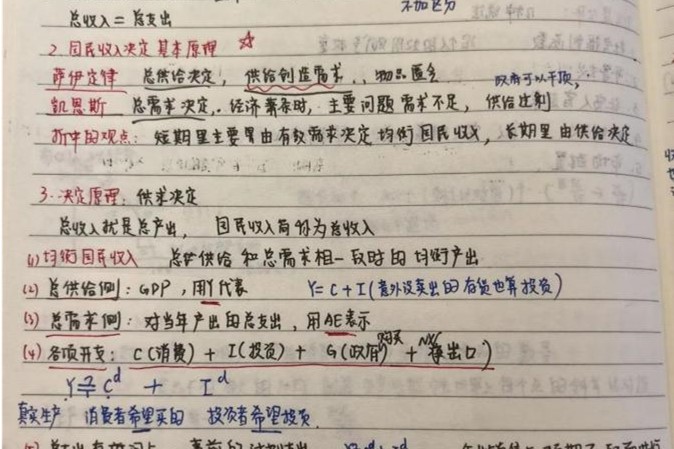 不加区分
总收入 = 总支出
2. 国民收入决定基本原理 ☆
萨伊定律 总供给决定，供给创造需求，物品匮乏 政府可以干预，
凯恩斯 总需求决定，经济萧条时，主要问题需求不足，供给过剩
折中的观点：短期里主要是由有效需求决定均衡国民收入，长期里由供给决定
3. 决定原理：供求决定
总收入就是总产出， 国民收入简称为总收入
(1) 均衡国民收入 总供给和总需求相一致时的均衡产出
(2) 总供给侧：GDP，用Y代表 Y= C+I(意外没卖出的存货也算投资)
(3) 总需求侧：对当年产出的总支出，用AE表示
(4) 各项开支：C(消费) + I(投资) + G(政府购买) + NX 净出口)
Y = Cᵈ + Iᵈ
真实生产 消费者希望买的 投资者希望投资